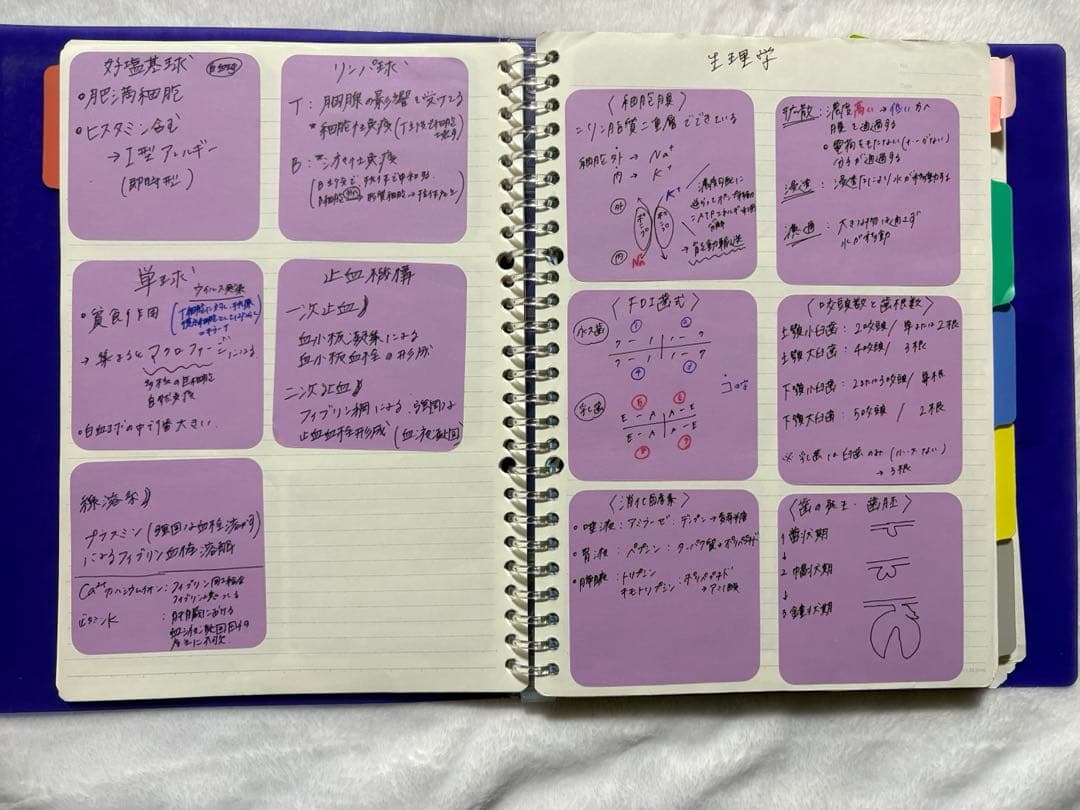 好塩基球
・肥満細胞
・ヒスタミン含む
→Ⅰ型アレルギー
(即時型)
リンパ球
T：胸腺の影響を受ける
*細胞性免疫
B：*
単球
ウイルス感染
・貪食作用
→集まるとマクロファージになる
自然免疫
・白血球の中で1番大きい。
止血機構
一次止血
血小板凝集による
血小板血栓の形成
二次止血
フィブリン網による強固な
止血血栓形成(血液凝固)
線溶系
プラスミン(強固な血栓溶かす)
によるフィブリン血栓溶解
Ca²⁺カルシウムイオン：フィブリン
ビタミンK：肝臓における
血液凝固因子の
産生に不可欠
生理学
〈細胞膜〉
二リン脂質二重層でできている
細胞外→Na⁺
内→K⁺
外
K⁺
ポンプ
ポンプ
内
Na⁺
→能動輸送
拡散：濃度高い→低い方へ
膜を通過する
分子が通過する
浸透：浸透圧により水が移動する
濾過：大きな物は通さず
水が移動
〈FDI歯式〉
永久歯
① ②
7－1 1－7
7－1 1－7
④ ③
コの字
乳歯
⑤ ⑥
E－A A－E
E－A A－E
⑧ ⑦
〈咬頭数と歯根数〉
上顎小臼歯：2咬頭/単または2根
上顎大臼歯：4咬頭/3根
下顎小臼歯：2または3咬頭/単根
下顎大臼歯：5咬頭/2根
※乳歯は臼歯のみ(小はない)
→3根
〈消化酵素〉
・唾液：アミラーゼ：デンプン→
・胃液：ペプシン：タンパク質→ポリペプチド
・膵臓：トリプシン
キモトリプシン：ポリペプチド
→アミノ酸
〈歯の発生・歯胚〉
1 蕾状期
↓
2 帽状期
↓
3 鐘状期